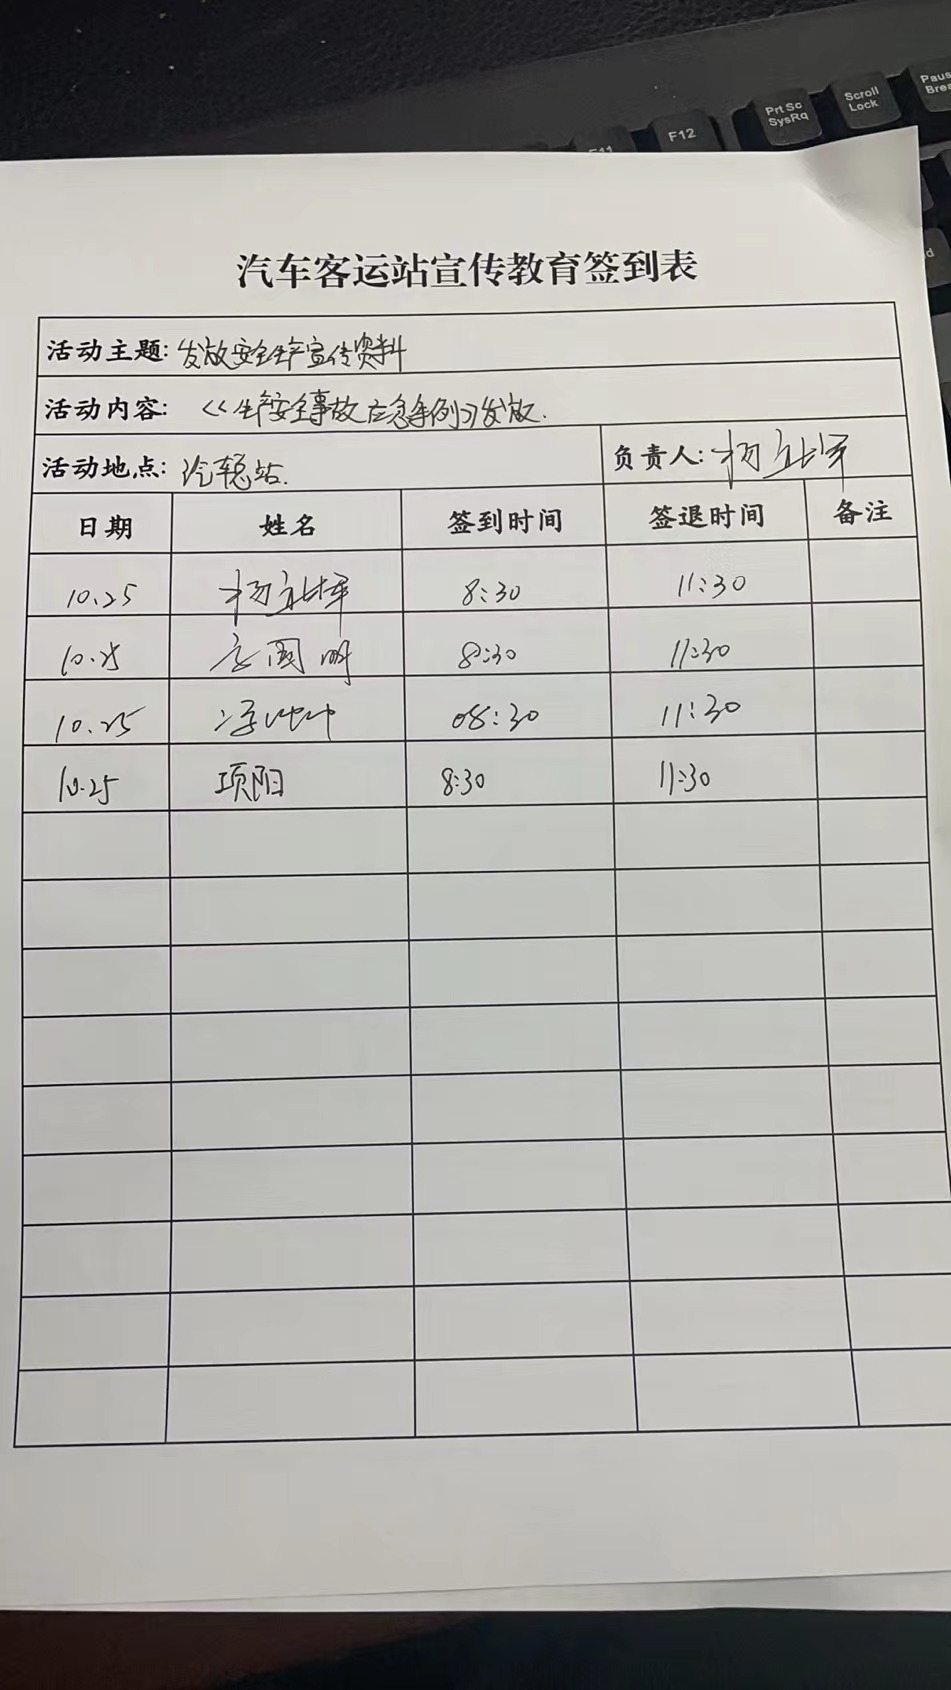 Pause
Scroll
Lock
Prt Sc
SysRq
F12
F11
汽车客运站宣传教育签到表
活动主题: 发放安全生产宣传资料
活动内容: <<生产安全事故应急条例>>发放.
活动地点: 汽车总站. 负责人: 杨
日期 姓名 签到时间 签退时间 备注
10.25 杨 8:30 11:30
10.25 国明 8:30 11:30
10.25 08:30 11:30
10.25 项阳 8:30 11:30